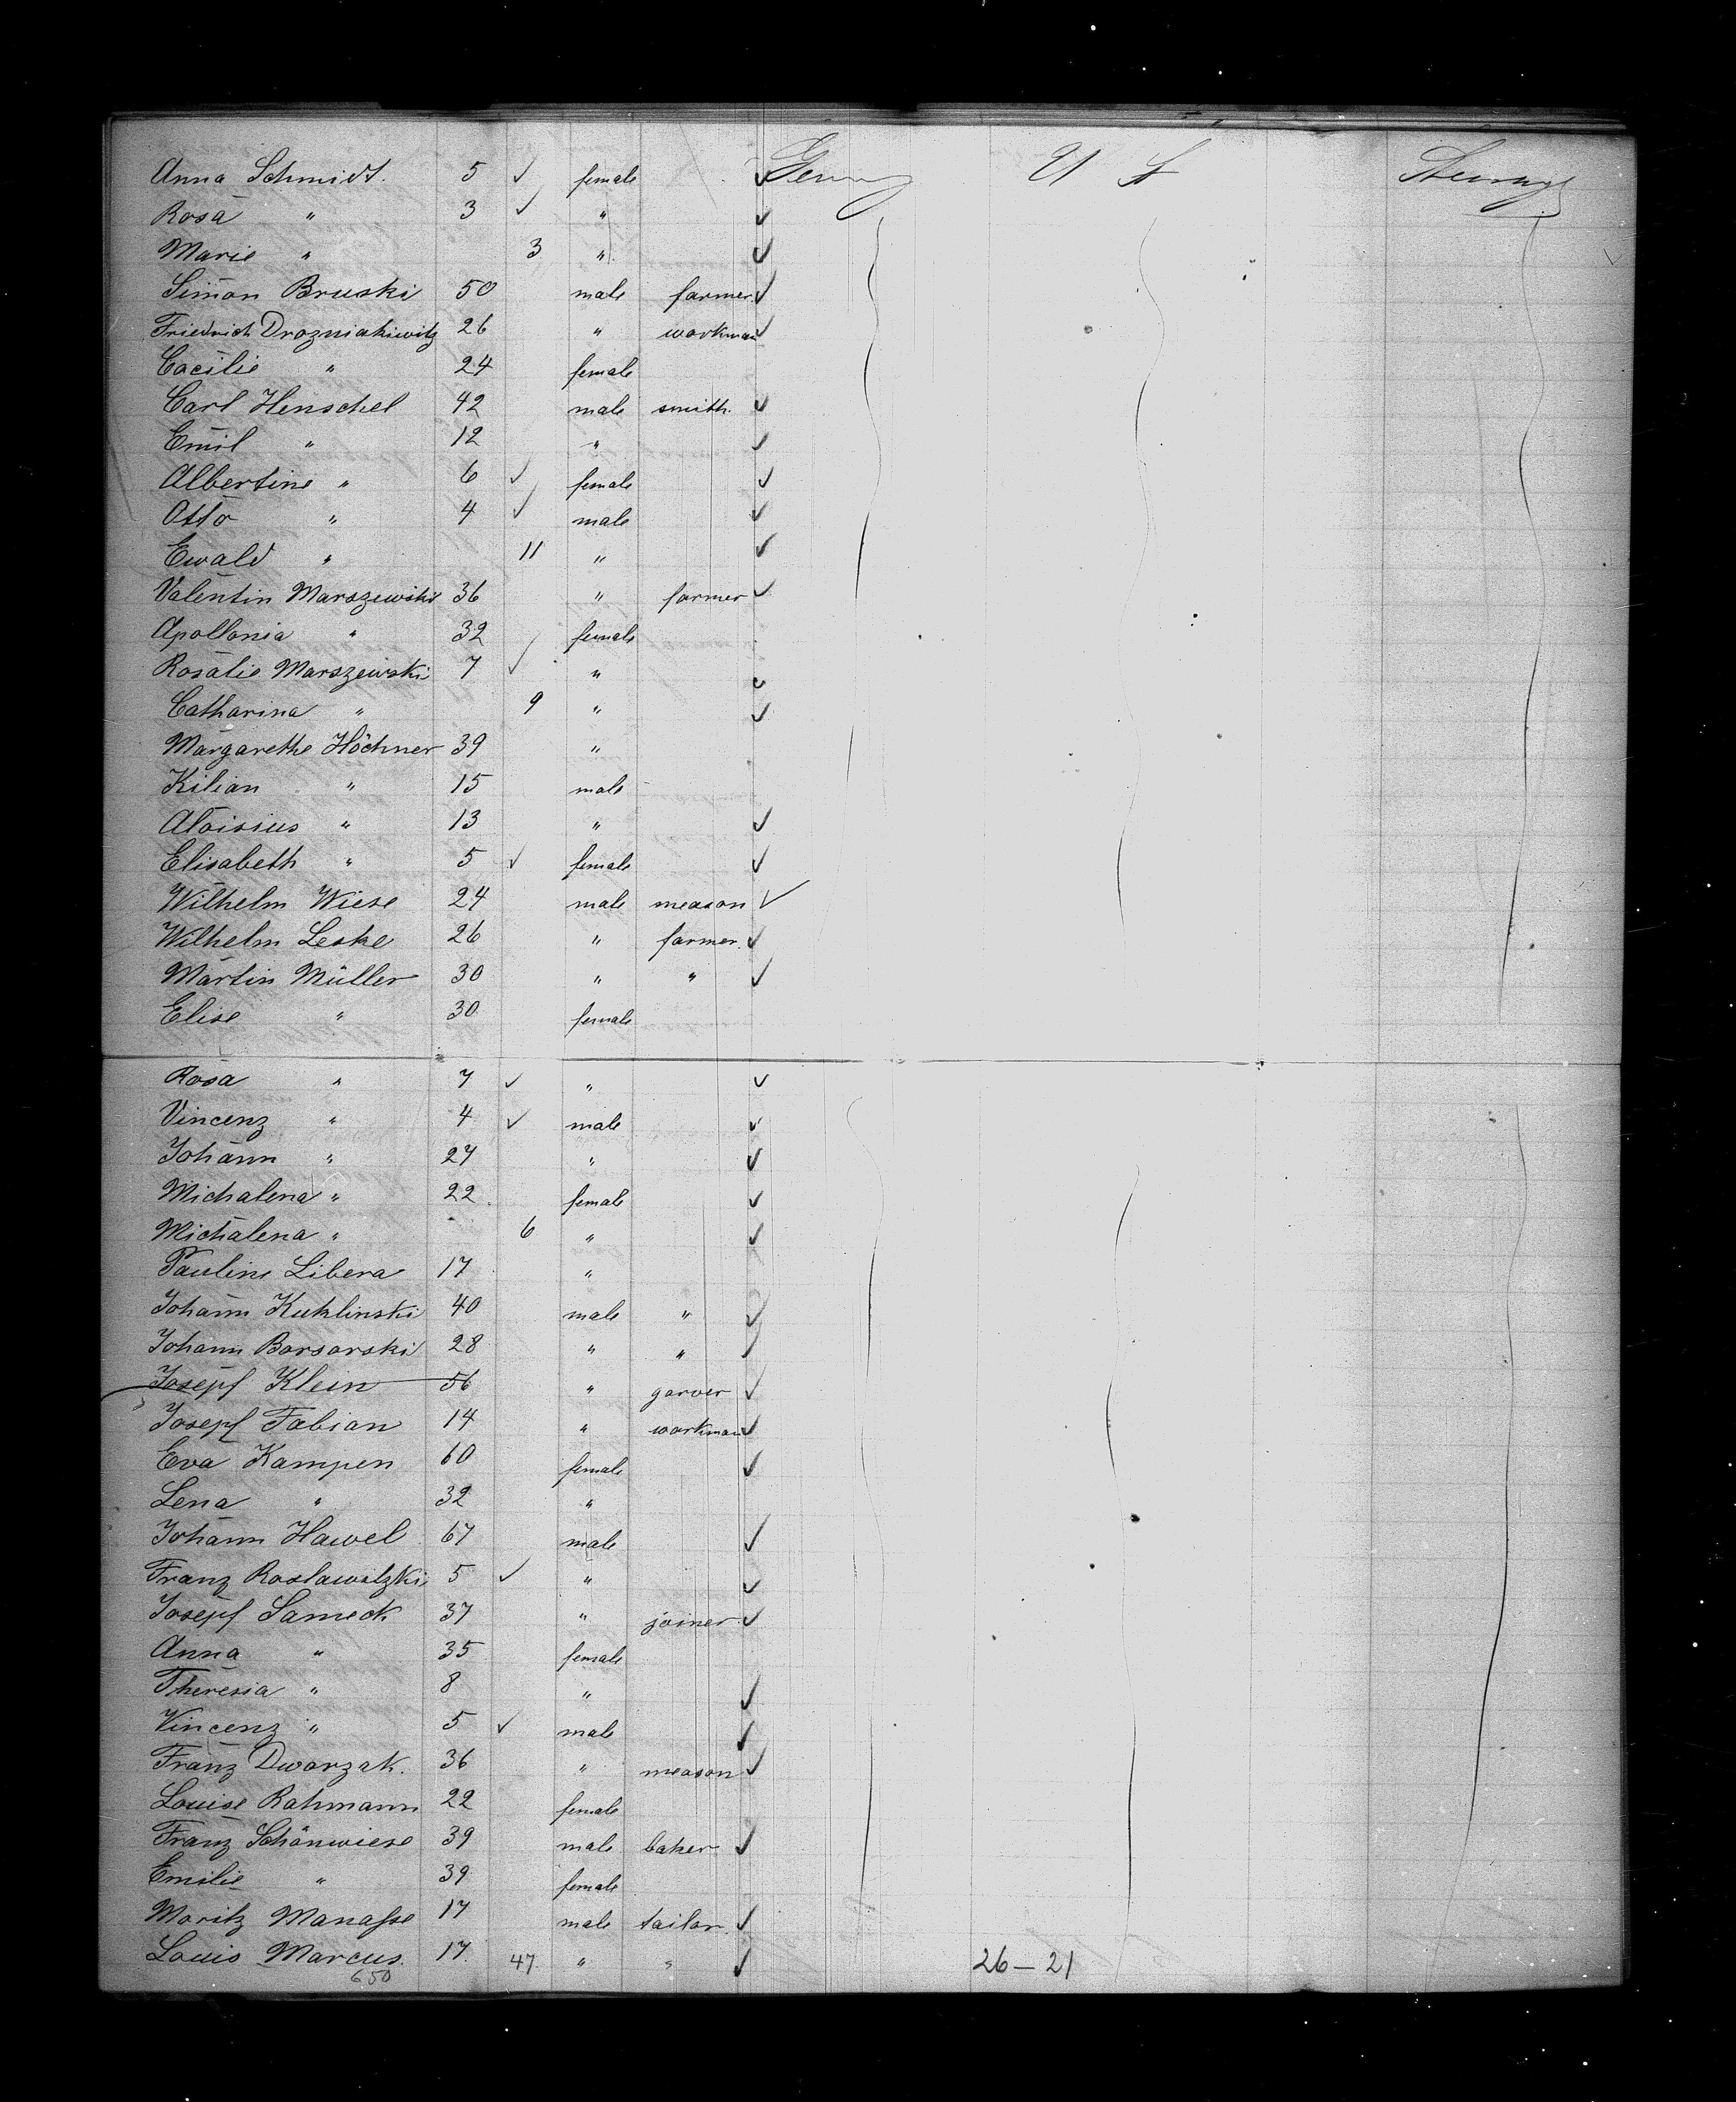 Anna Schmidt. 5 ✓ female ✓ Germy U S Steerage
Rosa " 3 ✓ " ✓
Marie " 3 " ✓
Simon Bruski 50 male farmer ✓
Friedrich Drozniakiwitz 26 " workman ✓
Cacilie " 24 female
Carl Henschel 42 male smith. ✓
Emil " 12 " ✓
Albertine " 6 ✓ female ✓
Otto " 4 ✓ male ✓
Ewald " 11 " ✓
Valentin Marszewski 36 " farmer ✓
Apollonia " 32 female
Rosalie Marszewski 7 ✓ " ✓
Catharina " 9 " ✓
Margarethe Höchner 39 "
Kilian " 15 male
Aloisius " 13 " ✓
Elisabeth " 5 ✓ female ✓
Wilhelm Wiese 24 male meason ✓
Wilhelm Leske 26 " farmer. ✓
Martin Müller 30 " " ✓
Elise " 30 female
Rosa " 7 ✓ " ✓
Vincenz " 4 ✓ male ✓
Johann " 27 " ✓
Michalena " 22 female ✓
Michalena " 6 " ✓
Pauline Libera 17 "
Johann Kuklinski 40 male " ✓
Johann Borsarski 28 " " ✓
Josepf Klein 56 " garver ✓
Josepf Fabian 14 " workman ✓
Eva Kampen 60 female ✓
Lena " 32 "
Johann Hawel 67 male ✓
Franz Roslawitzki 5 ✓ " ✓
Josepf Sameck 37 " joiner ✓
Anna " 35 female
Theresia " 8 " ✓
Vincenz " 5 ✓ male ✓
Franz Dworzak. 36 " meason ✓
Louise Rahmann 22 female
Franz Schönwiese 39 male baker ✓
Emilie " 39 female
Moritz Manasse 17 male tailor ✓
Louis Marcus. 17. 47. " " ✓ 26 – 21
650